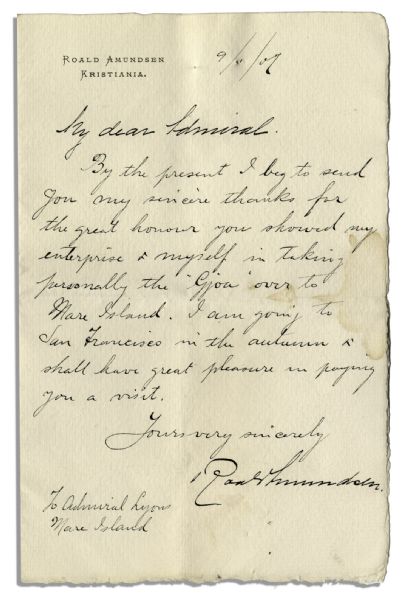 ROALD AMUNDSEN
KRISTIANIA.
My dear Admiral.
By the present I beg to send
you my sincere thanks for
the great honour you showed my
enterprise & myself in taking
personally the "Gjöa" over to
Mare Island. I am going to
San Francisco in the autumn &
shall have great pleasure in paying
you a visit.
Yours very sincerely
Roald Amundsen.
To Admiral Lyons
Mare Island